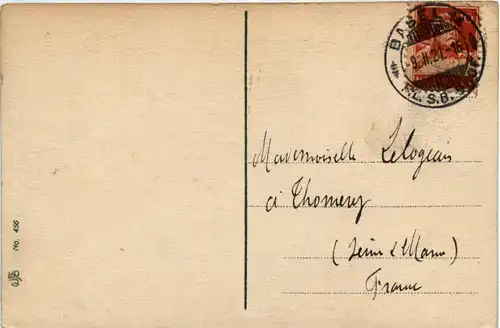 BASEL
-9.II.21.-16
FIL. S.B.Bhof.
Mademoiselle Lelogeais
à Thomery
(Seine & Marne)
France
No. 456